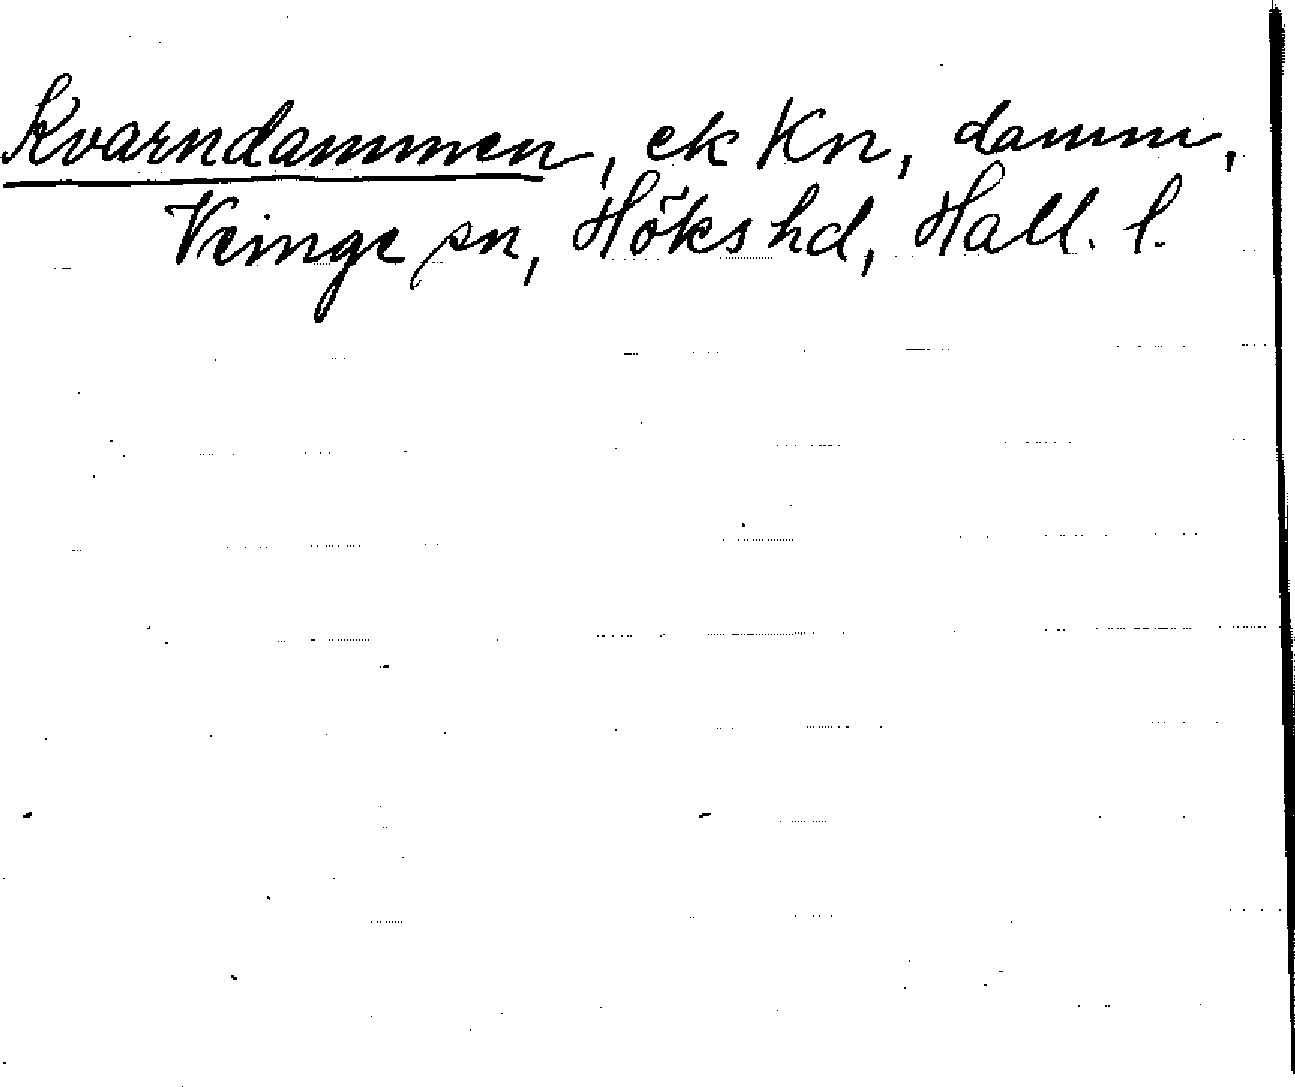 Kvarndammen, ek Kn, damm,
Veinge sn, Höks hd, Hall. l.